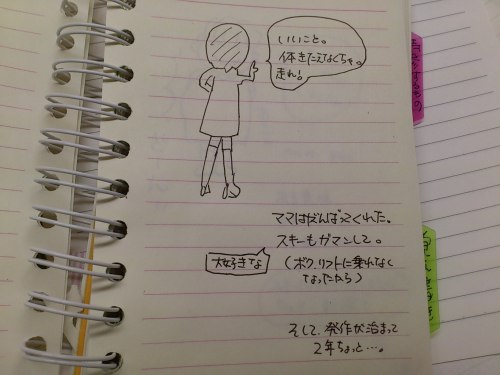 いいこと。
体きたえなくちゃ。
走れ!
ママはがんばってくれた。
スキーもガマンして。
大好きな
(ボク、リフトに乗れなく
なったから)
そして、発作が治まって
2年ちょっと…。